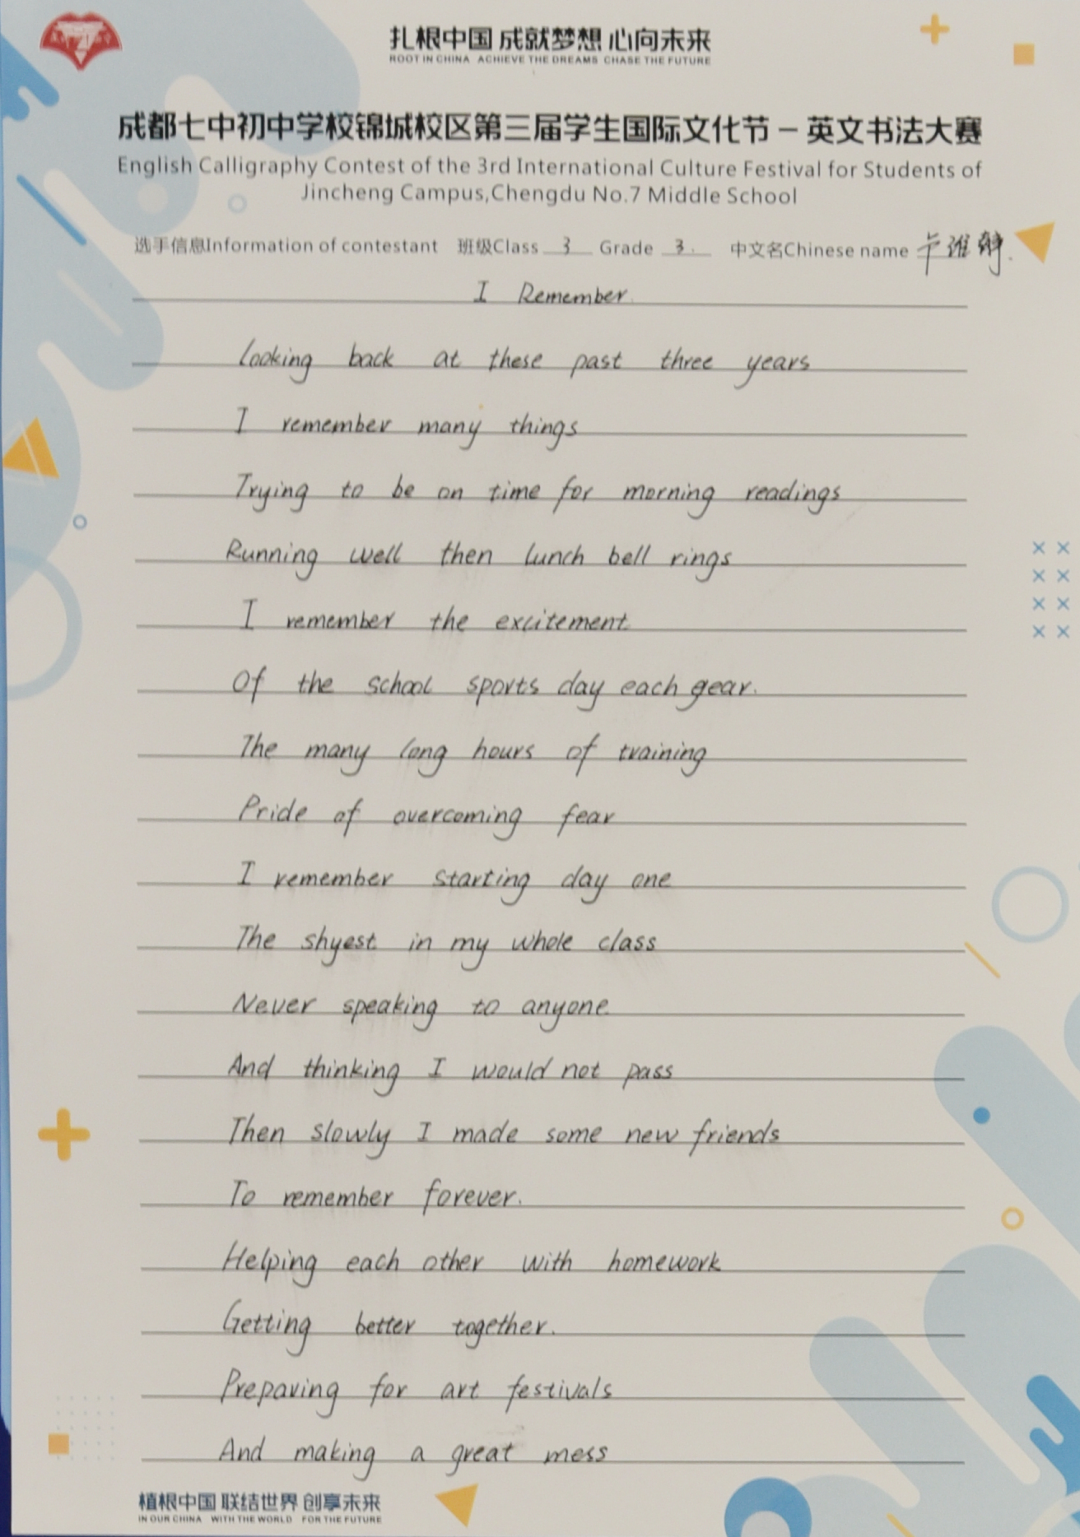 扎根中国 成就梦想 心向未来
ROOT IN CHINA ACHIEVE THE DREAMS CHASE THE FUTURE
成都七中初中学校锦城校区第三届学生国际文化节－英文书法大赛
English Calligraphy Contest of the 3rd International Culture Festival for Students of
Jincheng Campus,Chengdu No.7 Middle School
选手信息Information of contestant 班级Class 3 Grade 3. 中文名Chinese name
I Remember
Looking back at these past three years
I remember many things
Trying to be on time for morning readings
Running well then lunch bell rings
I remember the excitement
Of the school sports day each gear.
The many long hours of training
Pride of overcoming fear
I remember starting day one
The shyest in my whole class
Never speaking to anyone
And thinking I would not pass
Then slowly I made some new friends
To remember forever.
Helping each other with homework
Getting better together.
Preparing for art festivals
And making a great mess
植根中国 联结世界 创享未来
IN OUR CHINA WITH THE WORLD FOR THE FUTURE